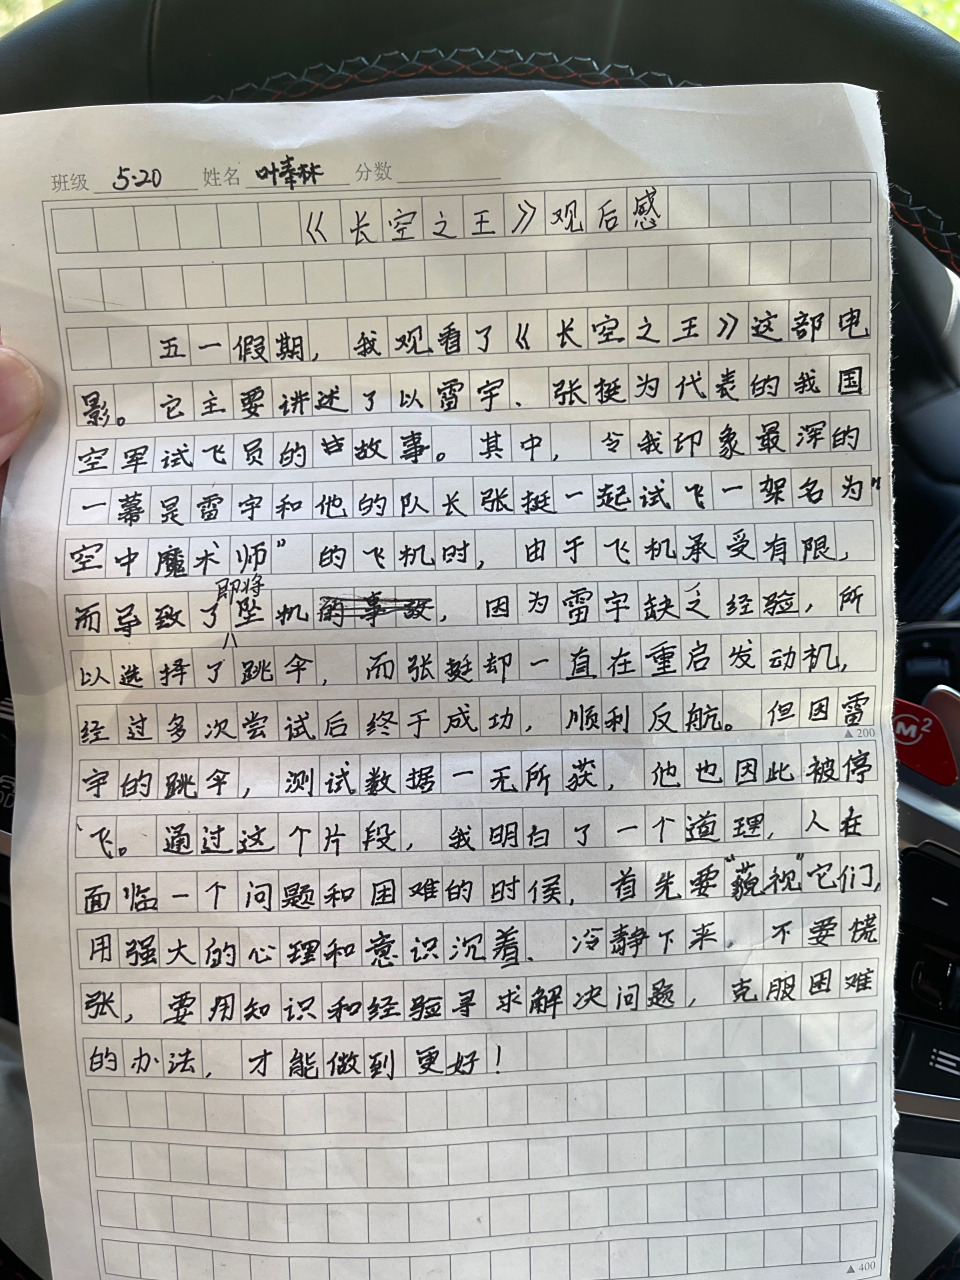 班级 5.20 姓名 叶奉林 分数
《长空之王》观后感
五一假期，我观看了《长空之王》这部电
影。它主要讲述了以雷宇、张挺为代表的我国
空军试飞员的故事。其中，令我印象最深的
一幕是雷宇和他的队长张挺一起试飞一架名为“
空中魔术师”的飞机时，由于飞机承受有限，
而导致了即将坠机的事故，因为雷宇缺乏经验，所
以选择了跳伞，而张挺却一直在重启发动机，
经过多次尝试后终于成功，顺利反航。但因雷
▲200
宇的跳伞，测试数据一无所获，他也因此被停
飞。通过这个片段，我明白了一个道理，人在
面临一个问题和困难的时候，首先要“藐视”它们，
用强大的心理和意识沉着、冷静下来，不要慌
张，要用知识和经验寻求解决问题，克服困难
的办法，才能做到更好！
▲400
M²